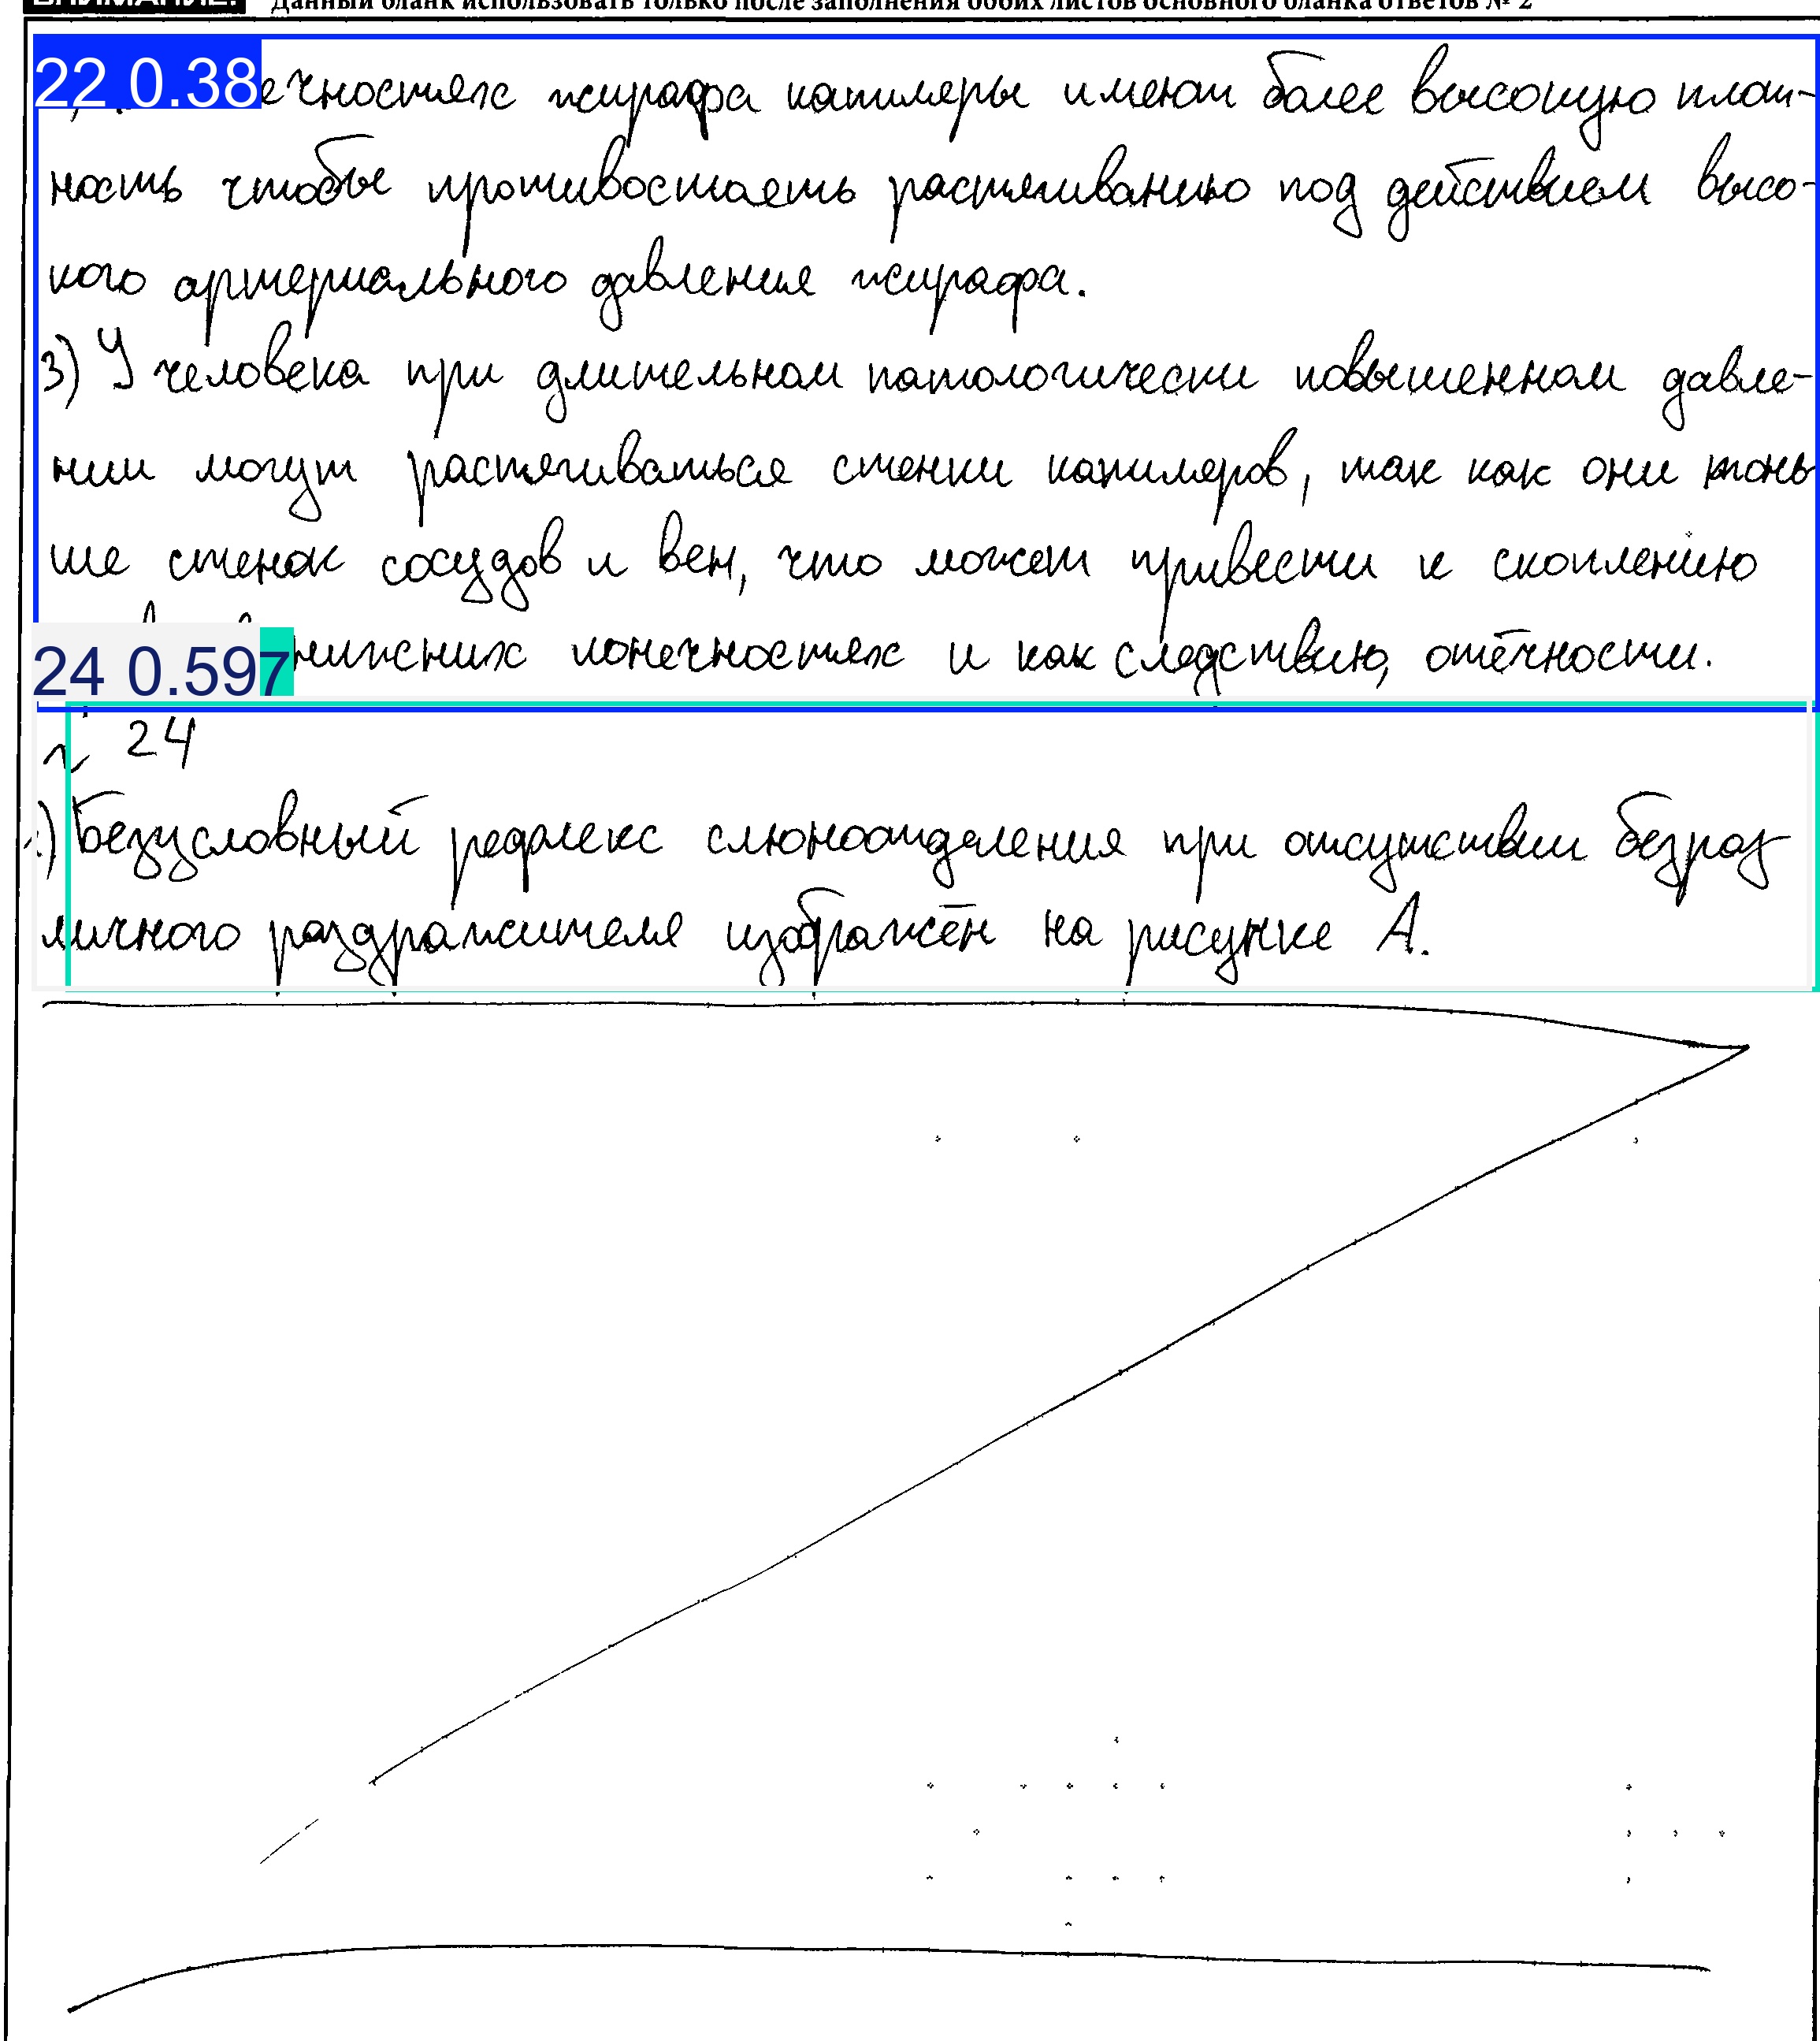 Данный бланк использовать только после заполнения обоих листов основного бланка ответов № 2
22 0.38
ечностях жирафа капиляры имеют более высокую плот-
ность чтобы противостаять растягиванию под действием высо-
кого артериального давления жирафа.
3) У человека при длительном патологически повышенном давле-
нии могут растягиваться стенки капиляров, так как они тонь
ше стенок сосудов и вен, что может привести к скоплению
24 0.597
нижних конечностях и как следствию, отёчности.
24
Безусловный рефлекс слюноотделения при отсутствии безраз
личного раздражителя изображён на рисунке А.